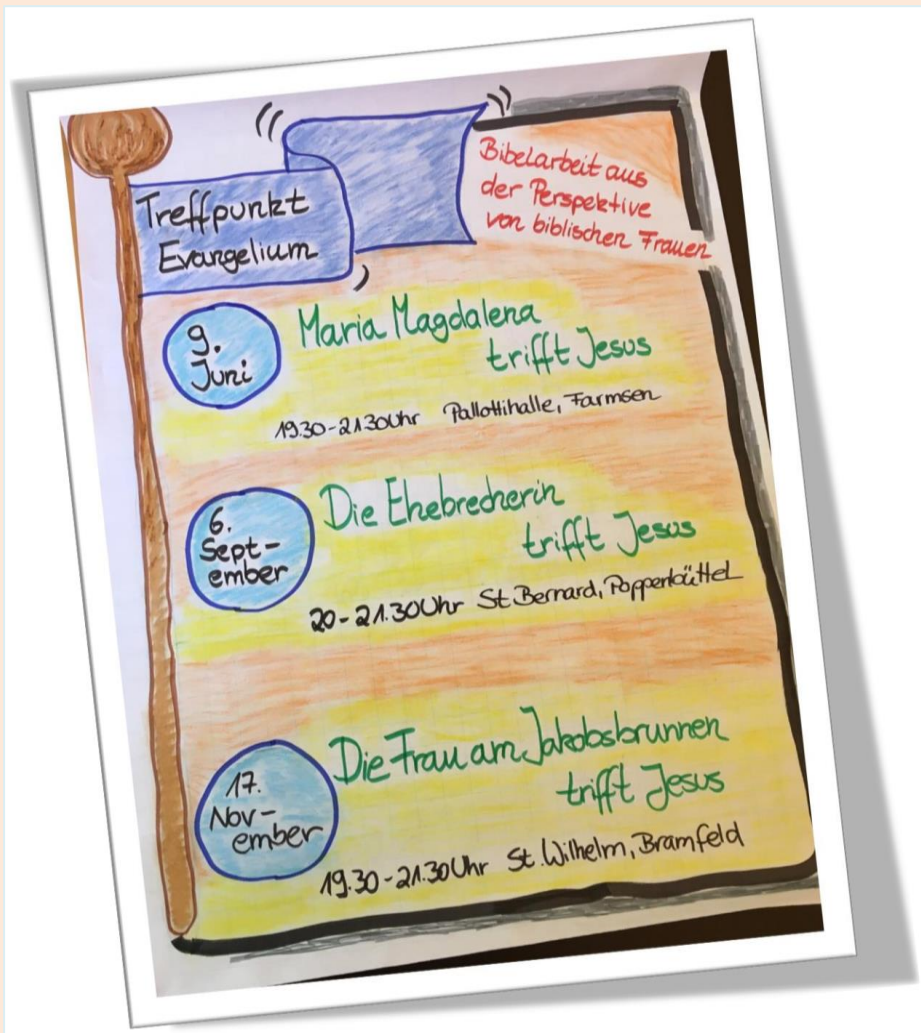 Treffpunkt
Evangelium
Bibelarbeit aus
der Perspektive
von biblischen Frauen
9.
Juni
Maria Magdalena
trifft Jesus
19.30-21.30Uhr Pallottihalle, Farmsen
6.
Sept-
ember
Die Ehebrecherin
trifft Jesus
20-21.30Uhr St.Bernard, Poppenbüttel
17.
Nov-
ember
Die Frau am Jakobsbrunnen
trifft Jesus
19.30-21.30Uhr St.Wilhelm, Bramfeld